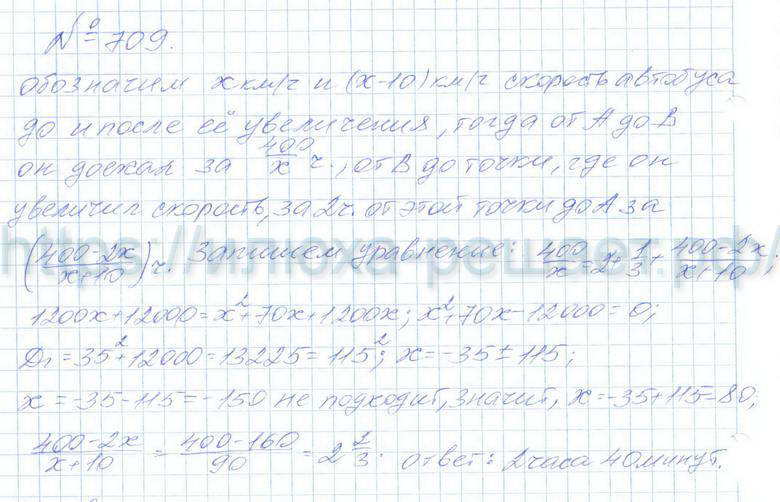 № 709.
обозначим x км/ч и (x-10) км/ч скорость автобуса
до и после её увеличения, тогда от A до B
он доехал за 400/x ч., от B до точки, где он
увеличил скорость, за 2ч. от этой точки до A за
((400-2x)/(x+10)) ч. Запишем уравнение: 400/x = 2+1/3+(400-2x)/(x+10);
https://илюха-решает.рф/
1200x+12000=x²+70x+1200x; x²+70x-12000=0;
D₁=35²+12000=13225=115²; x=-35±115;
x=-35-115=-150 не подходит, значит, x=-35+115=80;
(400-2x)/(x+10) = (400-160)/90 = 2 2/3. ответ: 2 часа 40 минут.